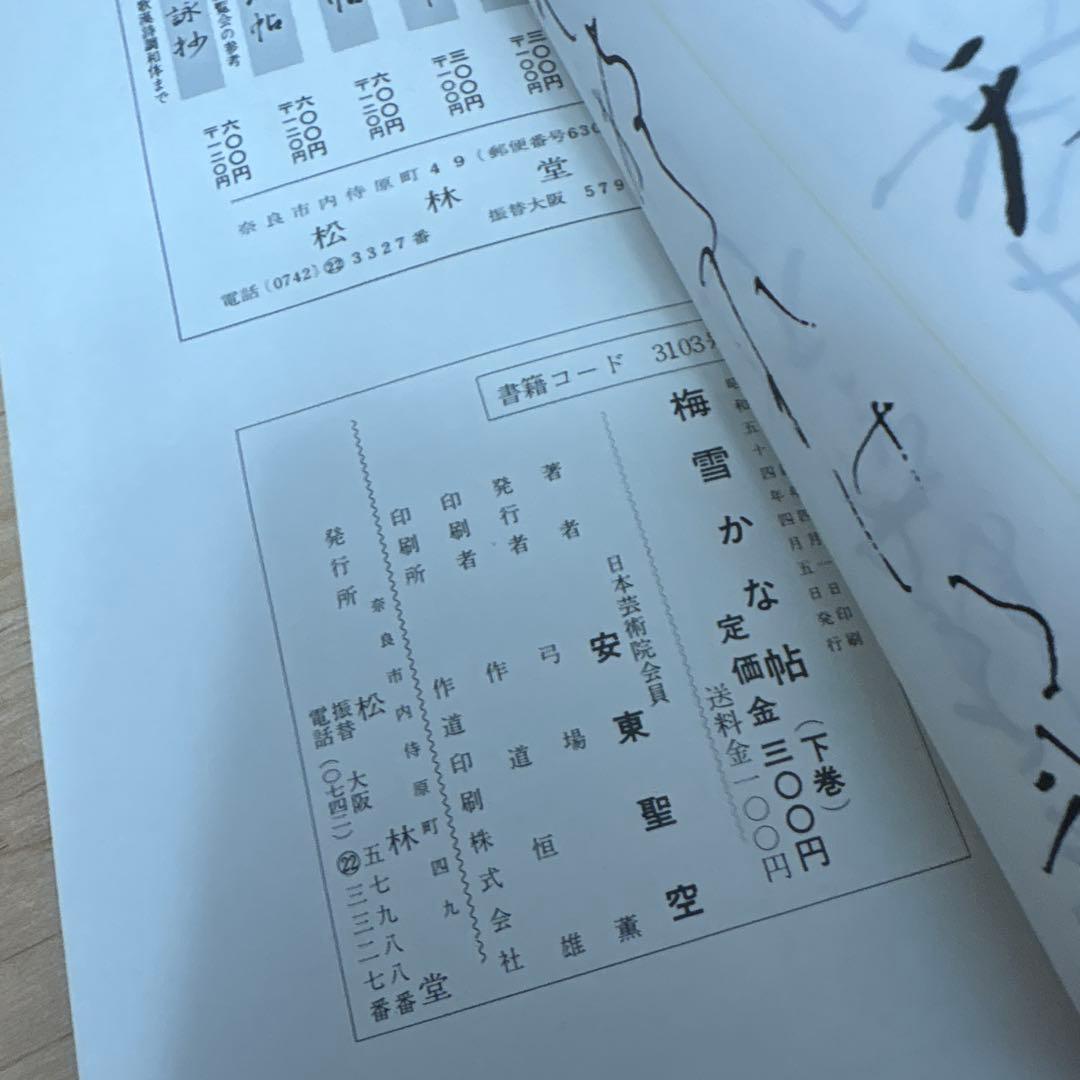 詠抄
歌漢詩調和体まで
六〇〇円
〒一二〇円
帖
覧会の参考
六〇〇円
〒一二〇円
帖
六〇〇円
〒一二〇円
三〇〇円
〒一〇〇円
三〇〇円
〒一〇〇円
奈良市内侍原町49(郵便番号630
松林堂
電話(0742)㉒3327番
振替大阪 579
書籍コード 3103
昭和五十四年四月五日発行
年四月一日印刷
梅雪かな帖(下巻)
定価金三〇〇円
送料金一〇〇円
日本芸術院会員
著者 安東聖空
発行者 弓場 薫
印刷者 作道恒雄
印刷所 作道印刷株式会社
奈良市内侍原町四九
発行所 松林堂
振替 大阪 五七九八八番
電話(〇七四二)㉒三三二七番